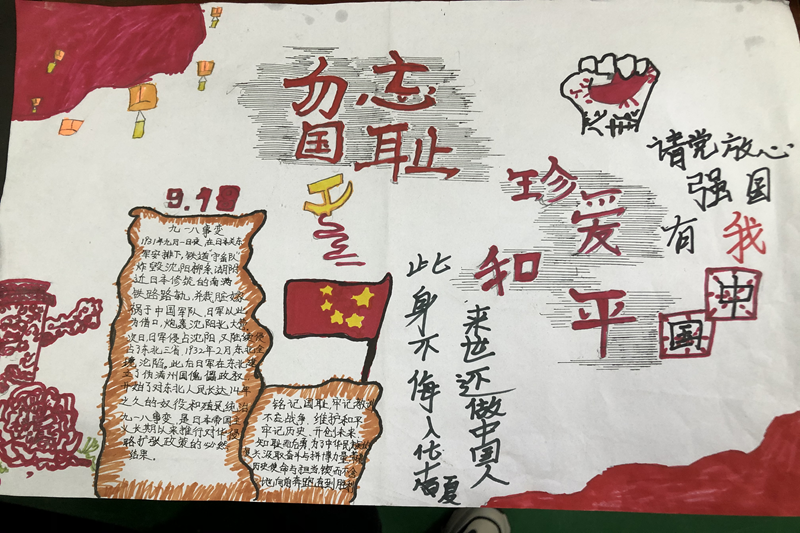 勿忘
国耻
珍爱
和平
请党放心
强国
有我
中国
9.18
九一八事变
1931年九月一日夜,在日本关东
军安排下,铁道守备队
炸毁沈阳柳条湖附
近日本修筑的南满
铁路路轨,并栽赃嫁
祸于中国军队,日军以此
为借口,炮轰沈阳北大营
次日,日军侵占沈阳,又陆续侵
占了东北三省 1932年2月东北全
境沦陷,此后日军在东北建
了伪满州国傀儡政权
开始了对东北人民长达14年
之久的奴役和殖民统治
九一八事变,是日本帝国主
义长期以来推行对华侵
略扩张政策的必然
结果。
铭记国耻,牢记
不在战争,维护和平
牢记历史,开创未来
知耻而后勇,为了中华民
汲取奋斗与拼博力量
历史使命与担当,锲而不舍
地向前奔跑直到胜利
此身不悔入华夏
来世还做中国人